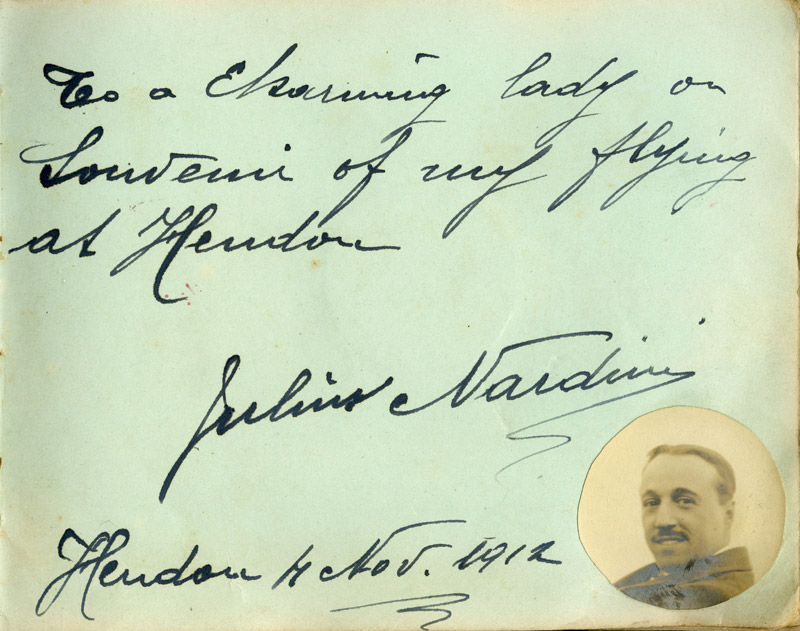 To a Charming lady on
Souvenir of my flying
at Hendon
Julius Nardini
Hendon 4 Nov. 1912